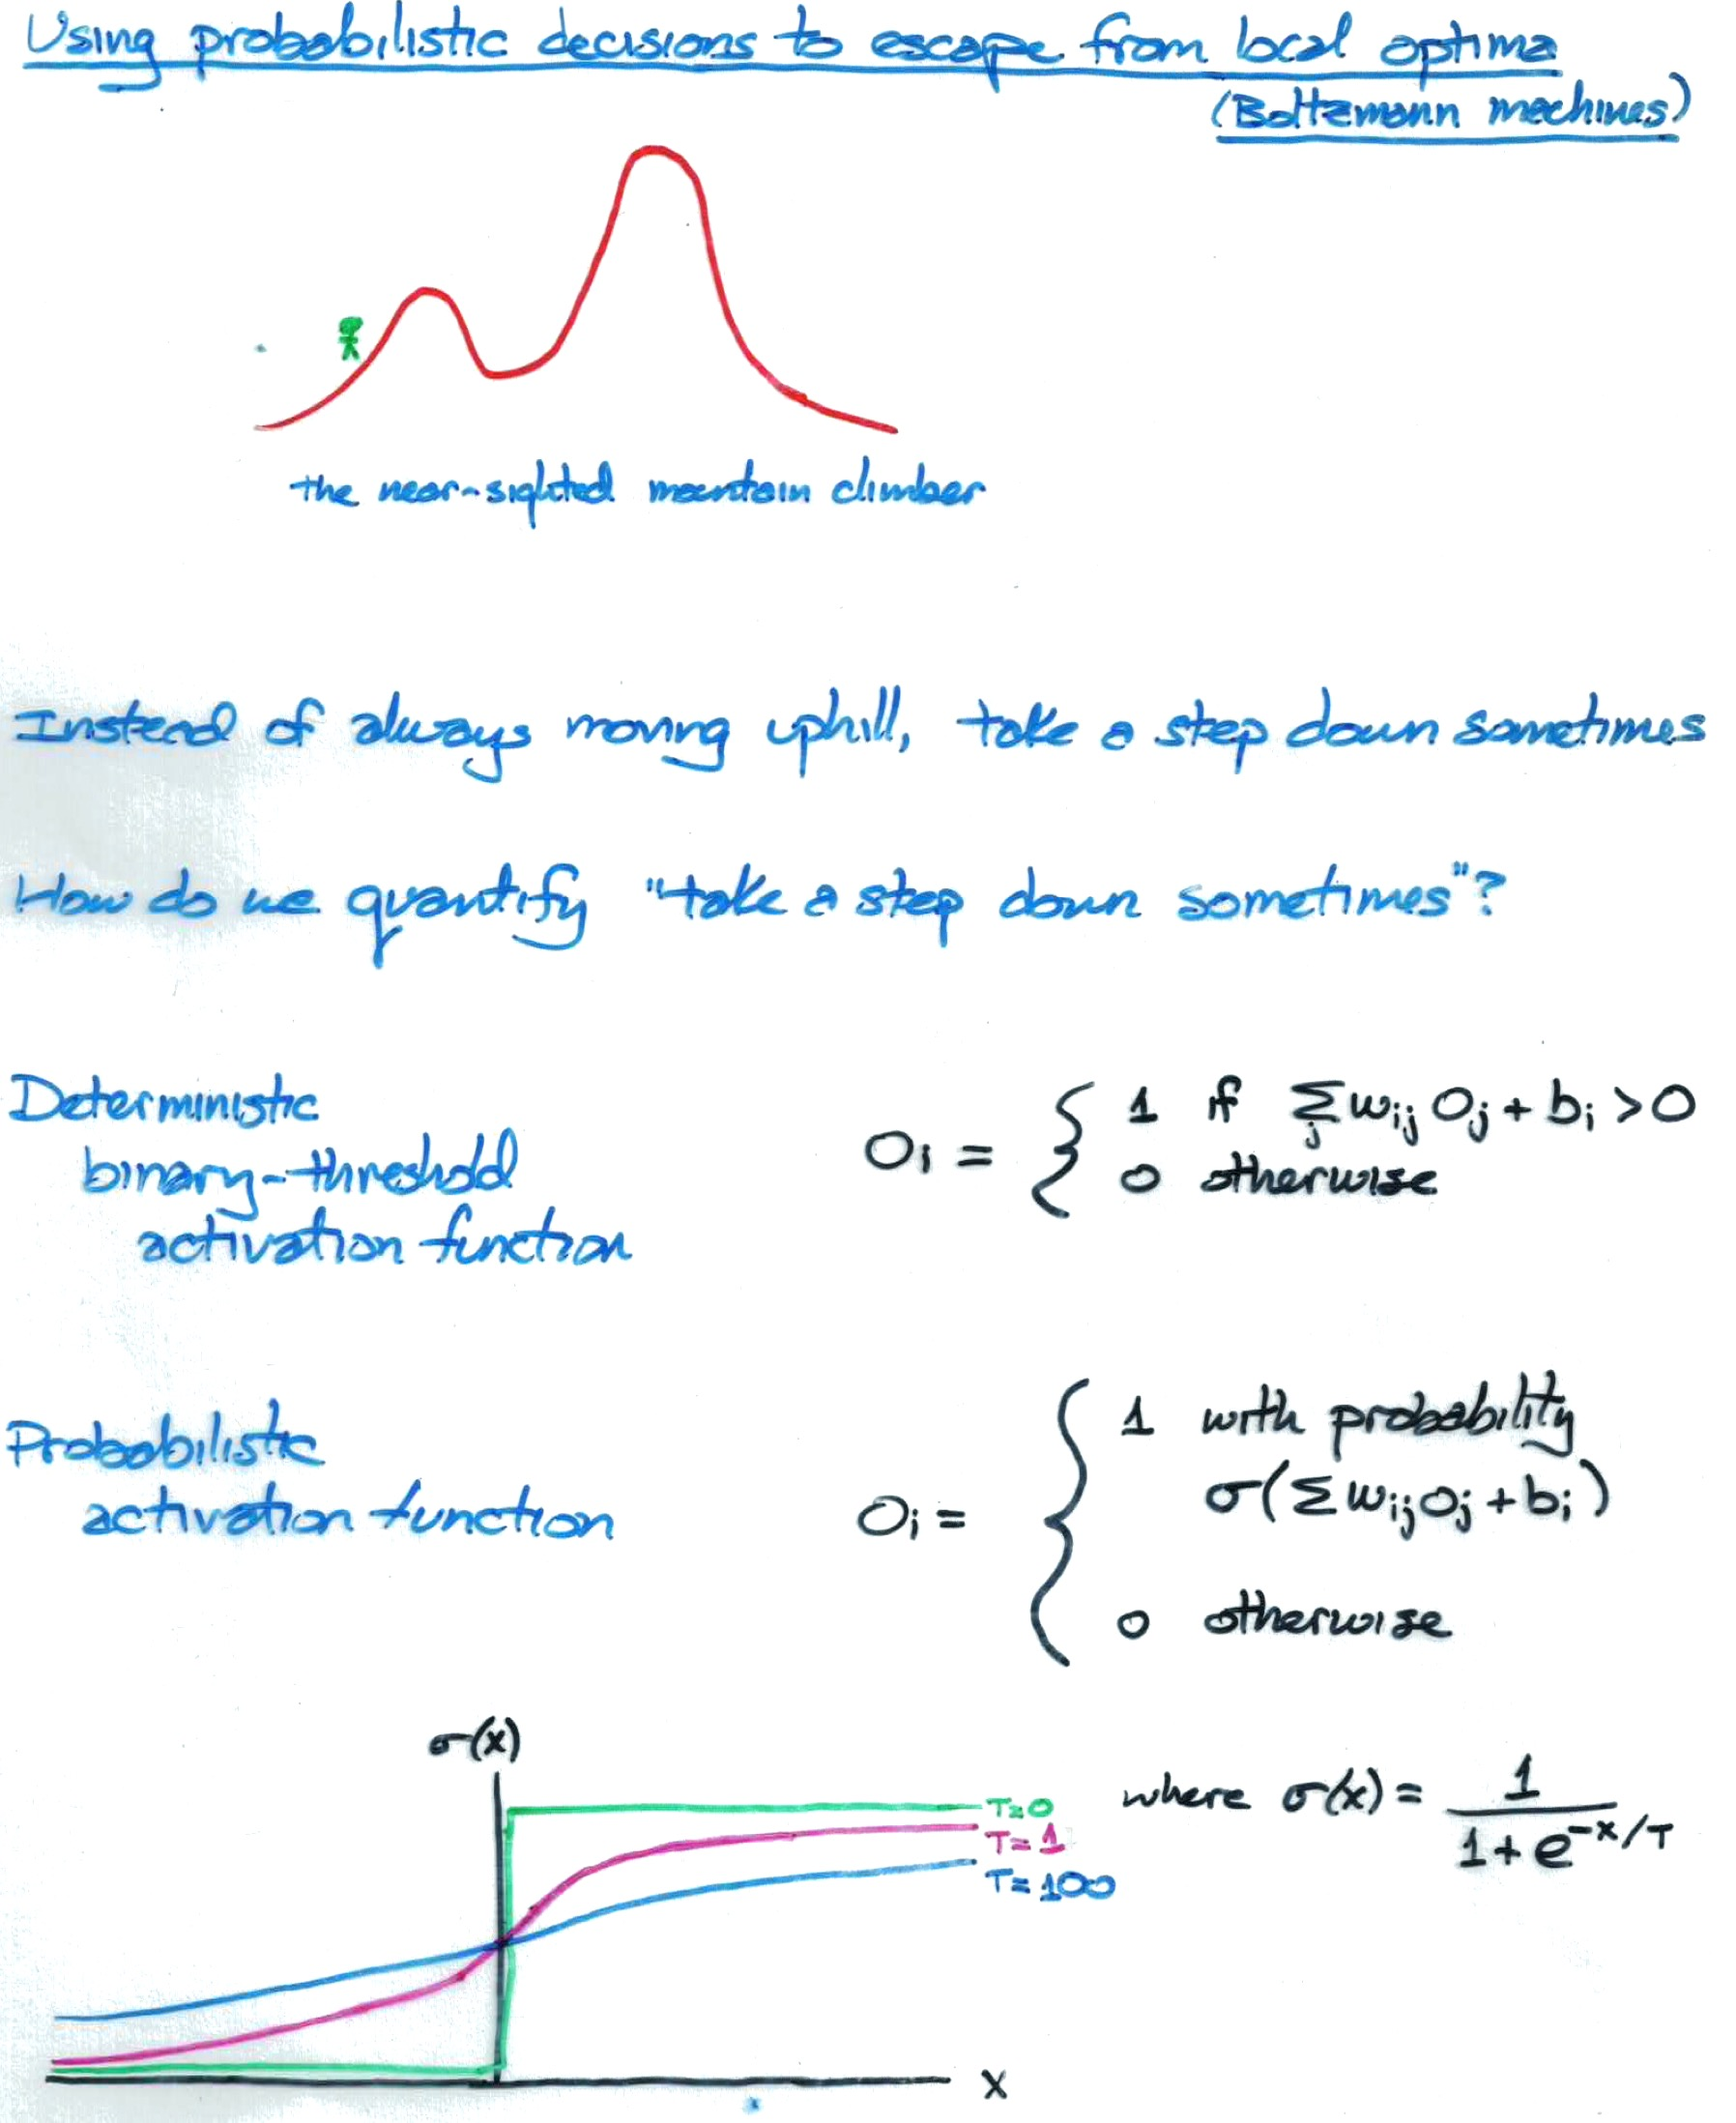 Using probabilistic decisions to escape from local optima
(Boltzmann machines)
the near-sighted mountain climber
Instead of always moving uphill, take a step down sometimes
How do we quantify "take a step down sometimes"?
Deterministic
binary-threshold
activation function
Oᵢ = { 1 if Σⱼ wᵢⱼ Oⱼ + bᵢ > 0
0 otherwise
Probabilistic
activation function
Oᵢ = { 1 with probability
σ(Σ wᵢⱼ oⱼ + bᵢ)
0 otherwise
σ(x)
T=0
T=1
T=100
x
where σ(x) = 1 / (1 + e^(-x/T))